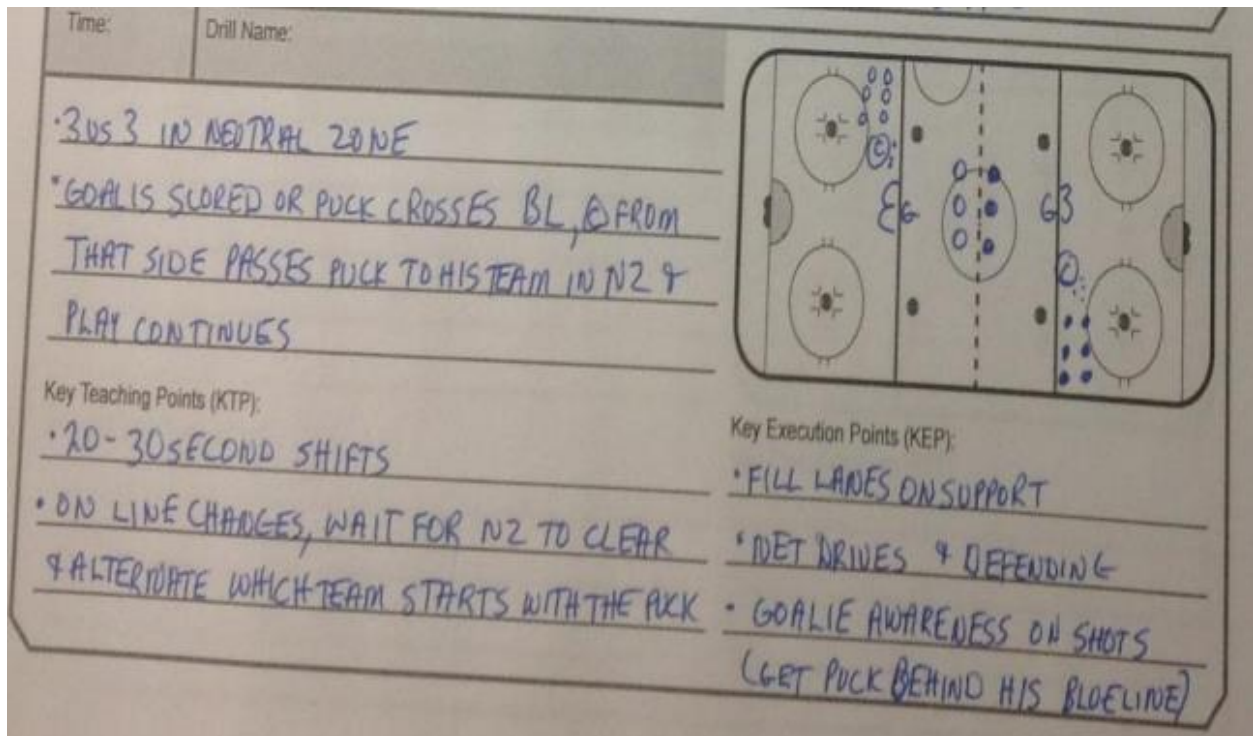 Time:
Drill Name:
• 3 vs 3 IN NEUTRAL ZONE
• GOAL IS SCORED OR PUCK CROSSES BL, Ⓒ FROM
THAT SIDE PASSES PUCK TO HIS TEAM IN NZ &
PLAY CONTINUES
G
G
Ⓒ
Ⓒ
Key Teaching Points (KTP):
• 20-30 SECOND SHIFTS
• ON LINE CHANGES, WAIT FOR NZ TO CLEAR
& ALTERNATE WHICH TEAM STARTS WITH THE PUCK
Key Execution Points (KEP):
• FILL LANES ON SUPPORT
• NET DRIVES & DEFENDING
• GOALIE AWARENESS ON SHOTS
(GET PUCK BEHIND HIS BLUELINE)